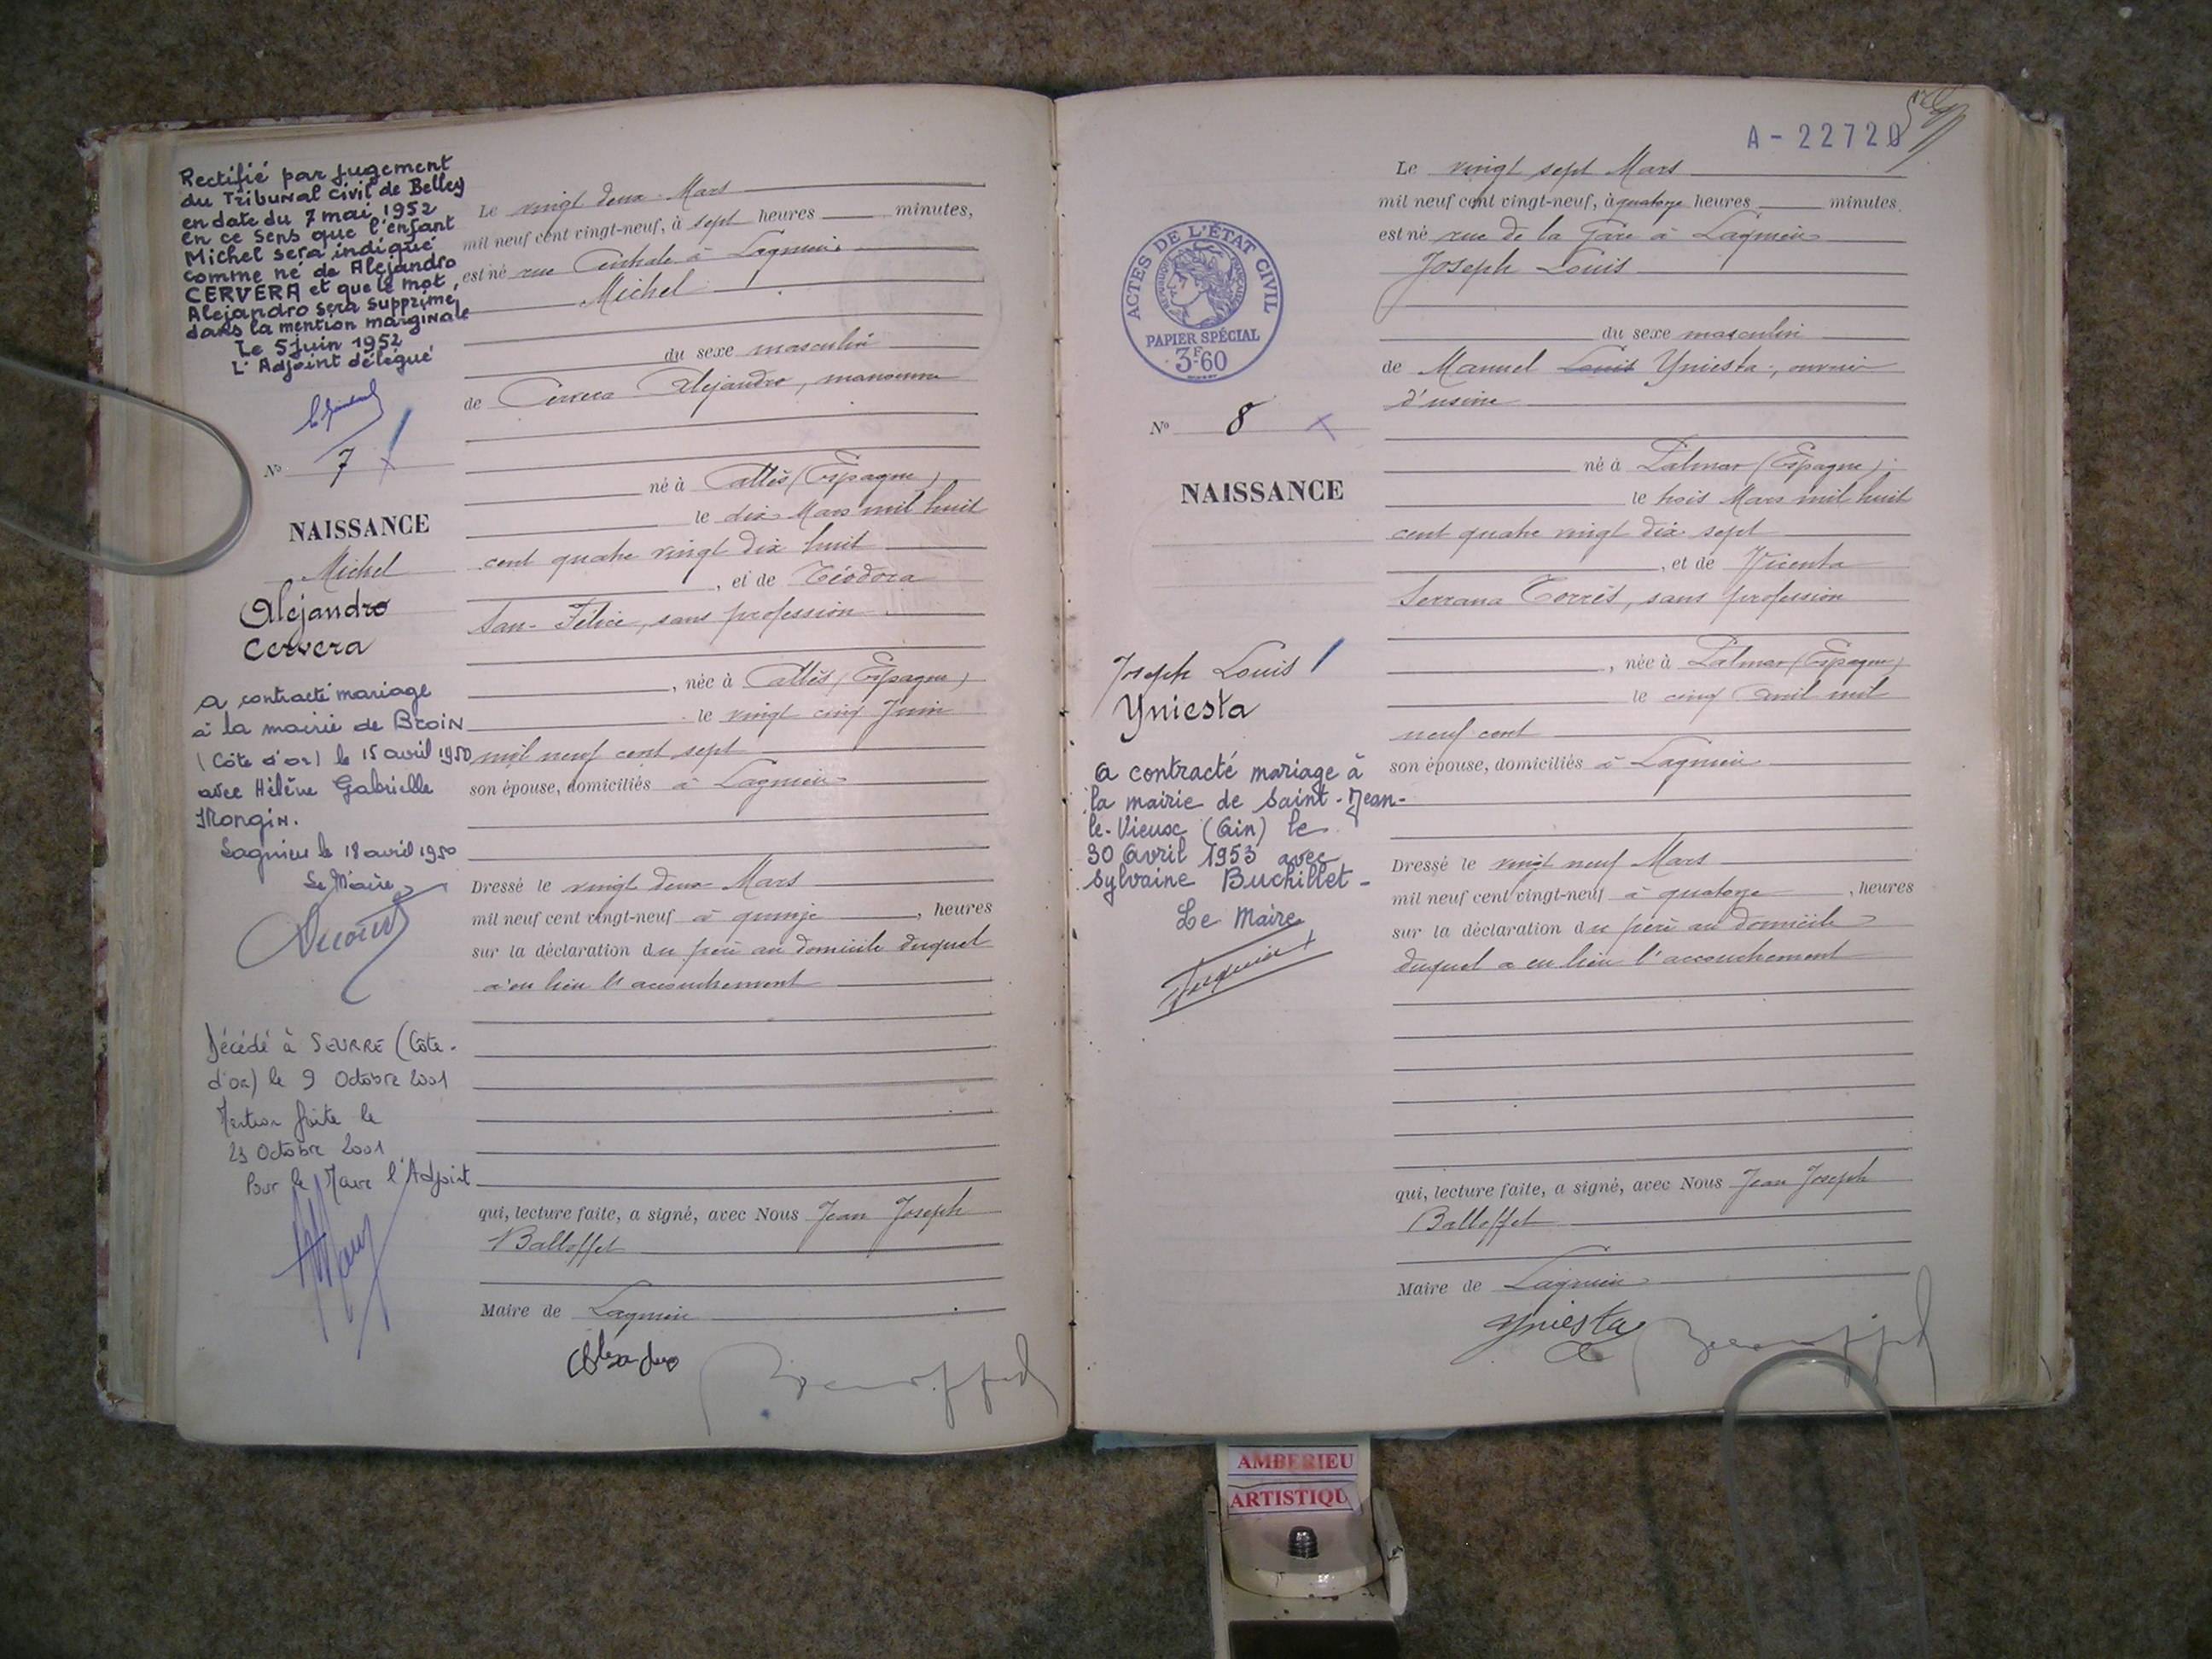 Rectifié par jugement
du Tribunal Civil de Belley
en date du 7 mai 1952
en ce sens que l'enfant
Michel sera indiqué
comme né de Alejandro
CERVERA et que le mot
Alejandro sera supprimé
dans la mention marginale
Le 5 Juin 1952
L'Adjoint délégué
No 7
NAISSANCE
Michel
Alejandro
Cervera
a contracté mariage
à la mairie de Broin
(Côte d'or) le 15 avril 1950
avec Hélène Gabrielle
Mongin.
Lagnieu le 18 avril 1950
Le Maire
Décédé à SEURRE (Côte-
d'or) le 9 Octobre 2001
Mention faite le
23 Octobre 2001
Pour le Maire l'Adjoint
Le vingt deux Mars
mil neuf cent vingt-neuf, à sept heures minutes,
est né rue Centrale à Lagnieu
Michel
du sexe masculin
de Cervera Alejandro, manoeuvre
né à Cattès (Espagne)
le dix Mars mil huit
cent quatre vingt dix huit
, et de Téodora
San-Félice, sans profession
, née à Cattès (Espagne)
le vingt cinq Juin
mil neuf cent sept
son épouse, domiciliés à Lagnieu
Dressé le vingt deux Mars
mil neuf cent vingt-neuf à quinze , heures
sur la déclaration du père au domicile duquel
a eu lieu l'accouchement
qui, lecture faite, a signé, avec Nous Jean Joseph
Balloffet
Maire de Lagnieu
A-22720
ACTES DE L'ÉTAT CIVIL
RÉPUBLIQUE FRANÇAISE
PAPIER SPÉCIAL
3F60
No 8
NAISSANCE
Joseph Louis
Yniesta
a contracté mariage à
la mairie de Saint-Jean-
le-Vieux (Ain) le
30 Avril 1953 avec
Sylvaine Buchillet-
Le Maire
Le vingt sept Mars
mil neuf cent vingt-neuf, à quatorze heures minutes
est né rue de la Gare à Lagnieu
Joseph Louis
du sexe masculin
de Manuel Louis Yniesta, ouvrier
d'usine
né à Palmar (Espagne)
le trois Mars mil huit
cent quatre vingt dix sept
, et de Vicenta
Serrana Torrès, sans profession
, née à Palmar (Espagne)
le cinq Avril mil
neuf cent
son épouse, domiciliés à Lagnieu
Dressé le vingt neuf Mars
mil neuf cent vingt-neuf à quatorze , heures
sur la déclaration du père au domicile
duquel a eu lieu l'accouchement
qui, lecture faite, a signé, avec Nous Jean Joseph
Balloffet
Maire de Lagnieu
Yniesta
AMBERIEU
ARTISTIQU